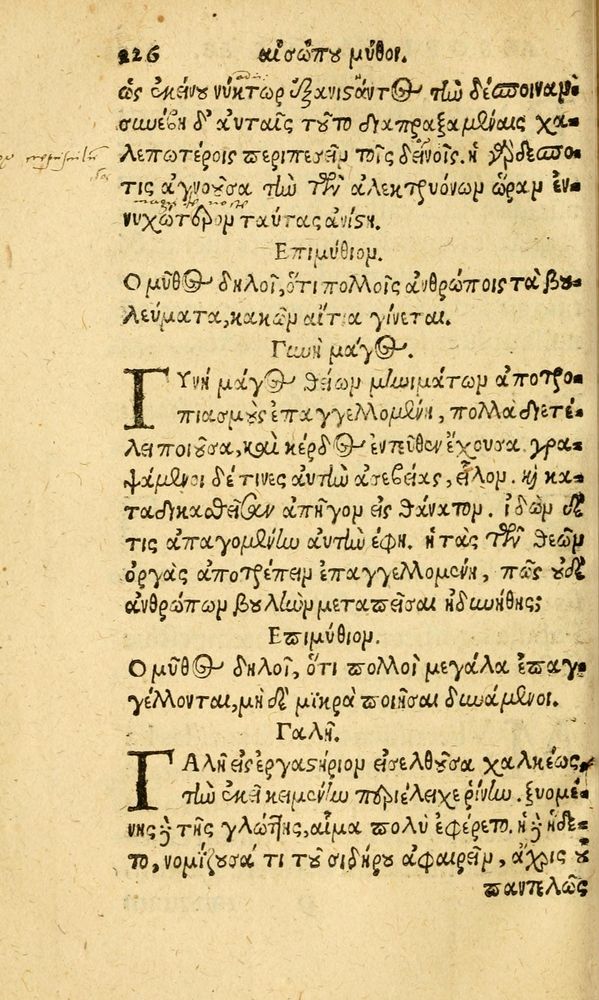 226 αἰσώπου μῦθοι.
ὡς ἐκείνου νύκτωρ ἐξανιστάντος τὴν δέσποιναμ·
συνέβη δ' αὐταῖς τοῦτο διαπραξαμέναις χα-
λεπωτέροις περιπεσεῖν τοῖς δεινοῖς. ἡ γὰρ δεσπό-
τις ἀγνοοῦσα τὴν τῶν ἀλεκτρυόνων ὥραμ ἐν-
νυχώτερομ ταύτας ἀνίστη.
Επιμύθιομ.
Ο μῦθος δηλοῖ, ὅτι πολλοῖς ἀνθρώποις τὰ βου-
λεύματα, κακῶμ αἴτια γίνεται.
Γυνὴ μάγος.
ΓΥνὴ μάγος θείωμ μηνιμάτωμ ἀποτρο-
πιασμοὺς ἐπαγγελλομένη, πολλὰ διετέ-
λει ποιοῦσα, καὶ κέρδος ἐντεῦθεν ἔχουσα. γρα-
ψάμενοι δέ τινες αὐτὴν ἀσεβείας, εἷλομ. καὶ κα-
ταδικασθεῖσαν ἀπῆγομ εἰς θάνατομ. ἰδὼμ δέ
τις ἀπαγομένην αὐτὴν ἔφη. ἡ τὰς τῶν θεῶμ
ὀργὰς ἀποτρέπειμ ἐπαγγελλομένη, πῶς οὐδὲ
ἀνθρώπωμ βουλὴμ μεταπεῖσαι ἠδυνήθης;
Επιμύθιομ.
Ο μῦθος δηλοῖ, ὅτι πολλοὶ μεγάλα ἐπαγ-
γέλλονται, μὴ δὲ μικρὰ ποιῆσαι δυνάμενοι.
Γαλῆ.
ΓΑλῆ εἰς ἐργαστήριομ εἰσελθοῦσα χαλκέως,
τὴν ἐκεῖ κειμένην περιέλειχε ῥίνην. ξυομέ-
νης δὲ τῆς γλώττης, αἷμα πολὺ ἐφέρετο. ἡ δὲ ἥδε-
το, νομίζουσά τι τοῦ σιδήρου ἀφαιρεῖμ, ἄχρις οὗ
παντελῶς